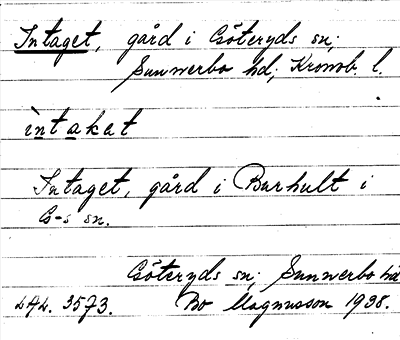 Intaget, gård i Göteryds sn;
Sunnerbo hd; Kronob. l.
ìntakat
Intaget, gård i Barhult i
G-s sn.
Göteryds sn; Sunnerbo hd
LAL. 3573. Bo Magnusson 1938.